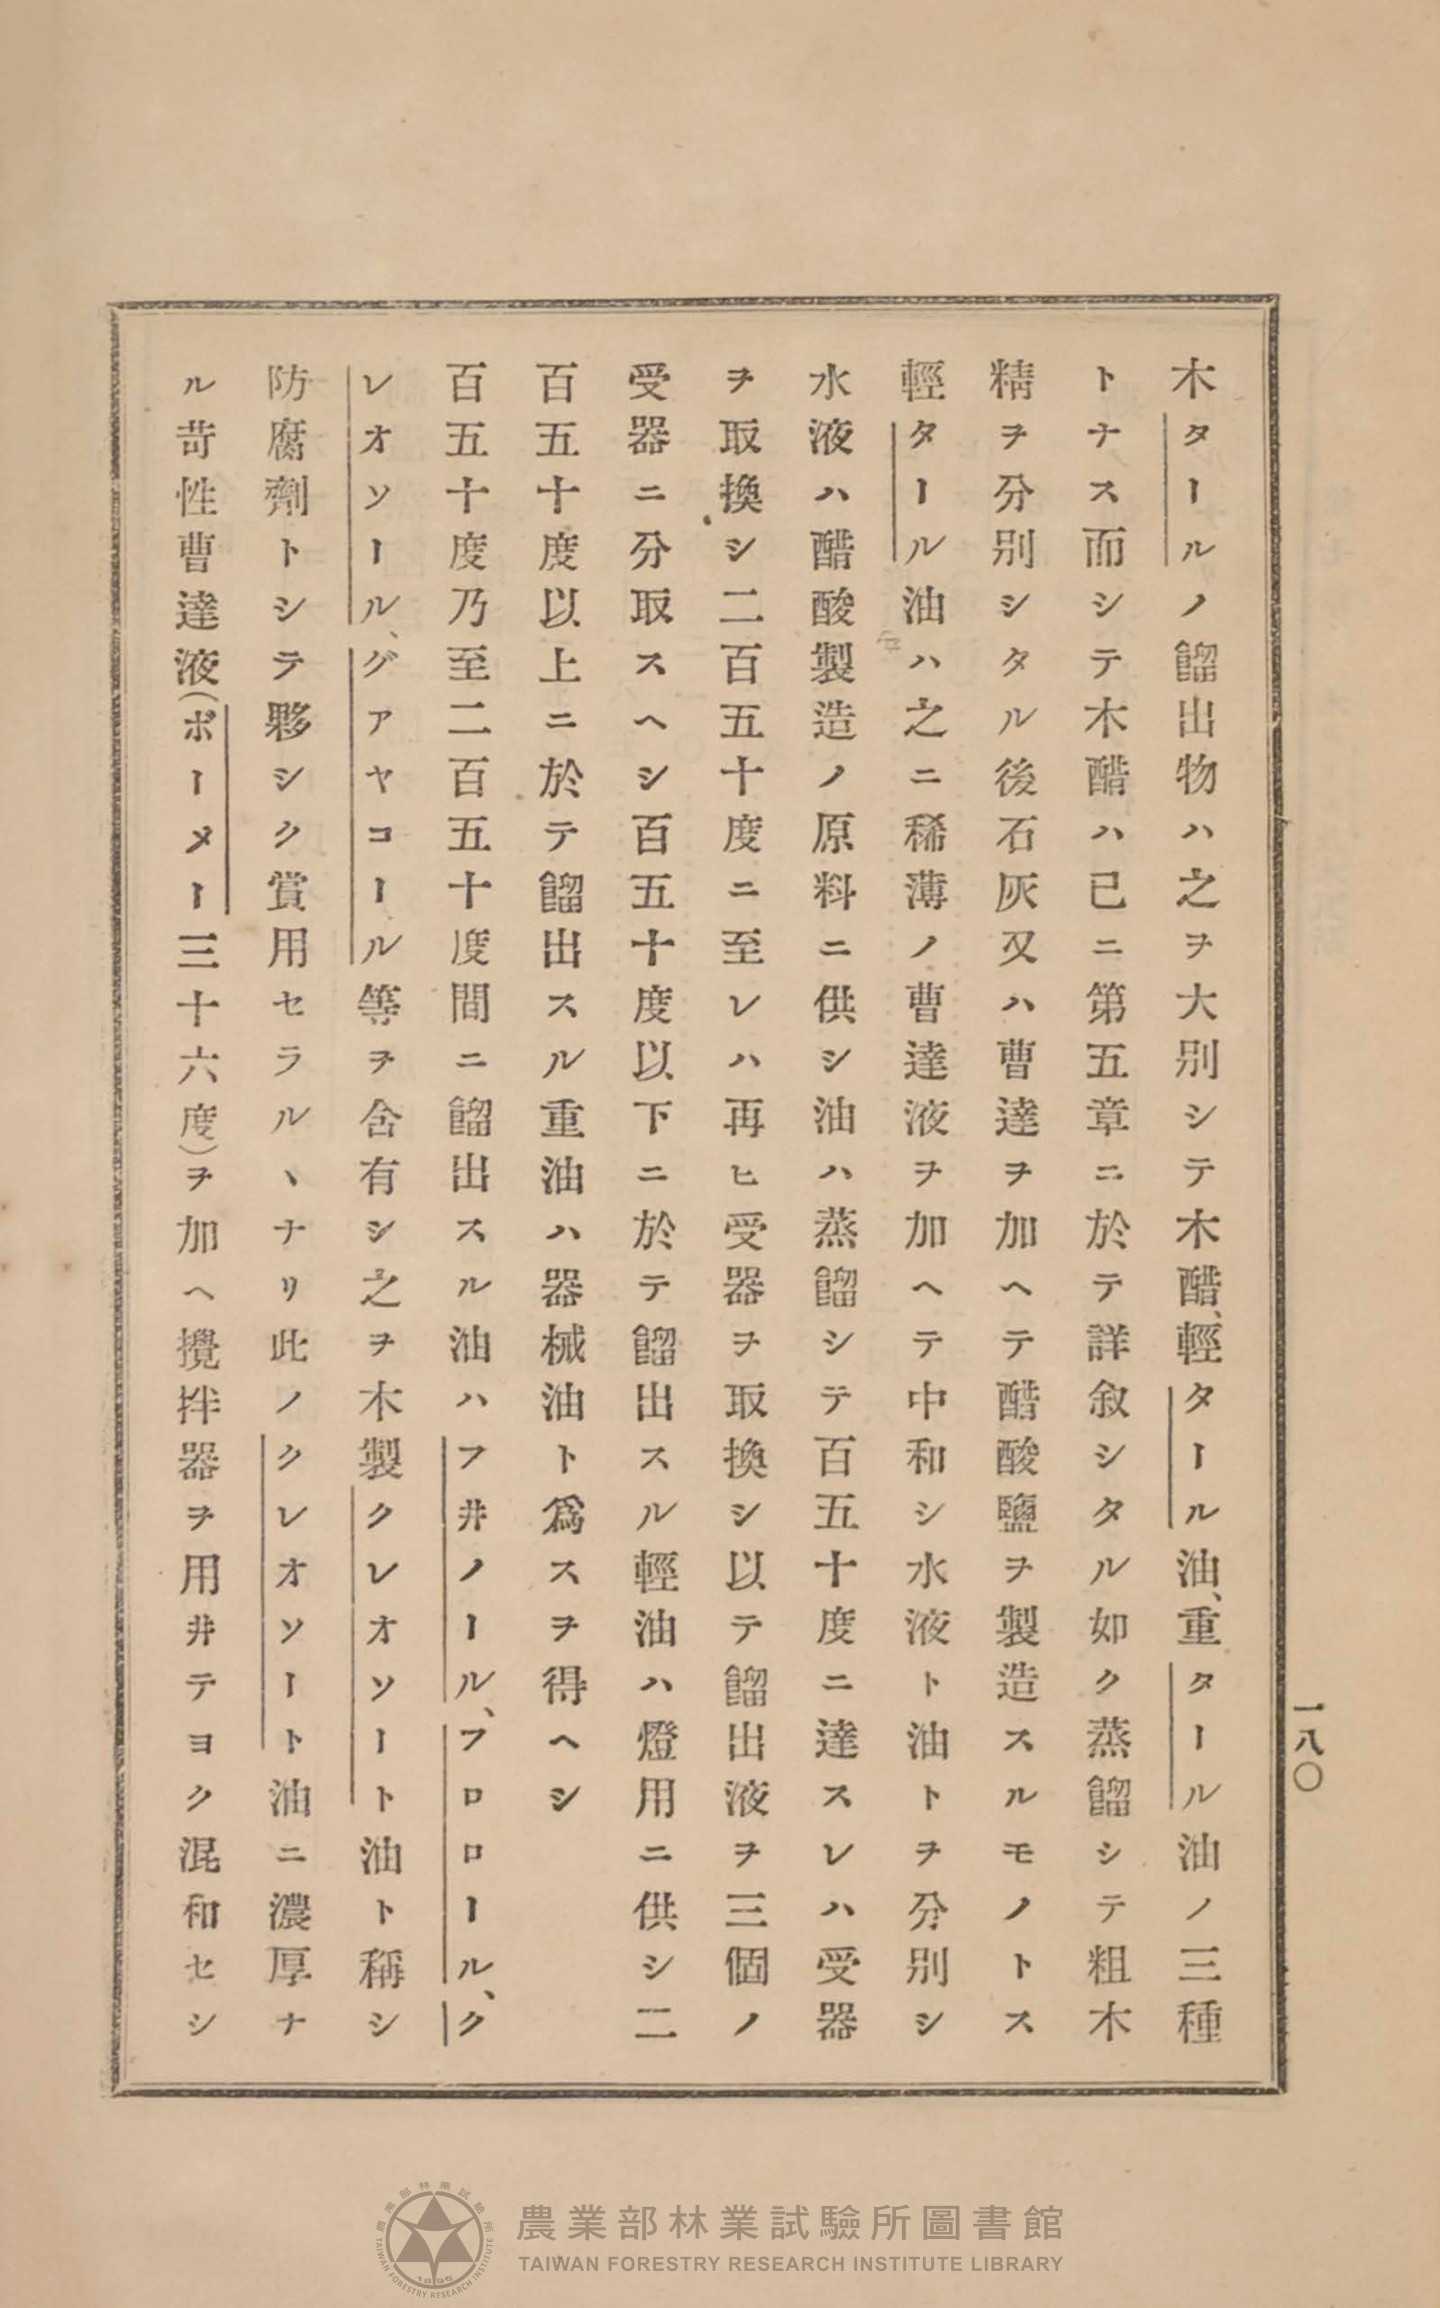 一八〇
木タールノ餾出物ハ之ヲ大別シテ木醋、輕タール油、重タール油ノ三種
トナス而シテ木醋ハ已ニ第五章ニ於テ詳敘シタル如ク蒸餾シテ粗木
精ヲ分別シタル後石灰又ハ曹達ヲ加ヘテ醋酸鹽ヲ製造スルモノトス
輕タール油ハ之ニ稀薄ノ曹達液ヲ加ヘテ中和シ水液ト油トヲ分別シ
水液ハ醋酸製造ノ原料ニ供シ油ハ蒸餾シテ百五十度ニ達スレハ受器
ヲ取換シ二百五十度ニ至レハ再ヒ受器ヲ取換シ以テ餾出液ヲ三個ノ
受器ニ分取スヘシ百五十度以下ニ於テ餾出スル輕油ハ燈用ニ供シ二
百五十度以上ニ於テ餾出スル重油ハ器械油ト爲スヲ得ヘシ
百五十度乃至二百五十度間ニ餾出スル油ハフ井ノール、フロロール、ク
レオソール、グアヤコール等ヲ含有シ之ヲ木製クレオソート油ト稱シ
防腐劑トシテ夥シク賞用セラルヽナリ此ノクレオソート油ニ濃厚ナ
ル苛性曹達液(ボーメー三十六度)ヲ加ヘ攪拌器ヲ用井テヨク混和セシ
農業部林業試驗所圖書館
TAIWAN FORESTRY RESEARCH INSTITUTE LIBRARY
農業部林業試驗所
TAIWAN FORESTRY RESEARCH INSTITUTE
1896